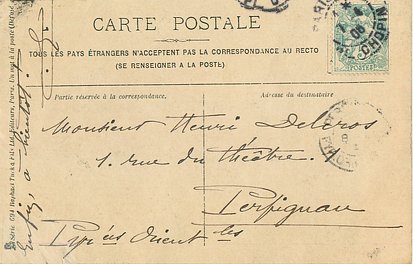 CARTE POSTALE
TOUS LES PAYS ÉTRANGERS N'ACCEPTENT PAS LA CORRESPONDANCE AU RECTO
(SE RENSEIGNER A LA POSTE)
Partie réservée à la correspondance.
Adresse du destinataire
Monsieur Henri Delcros
1. rue du théâtre.
Perpignan
Pyr ées Orient les
Enfin, à bientôt!
Série 694 Raphael Tuck & Fils Ltd. Editeurs, Paris.
PARIS